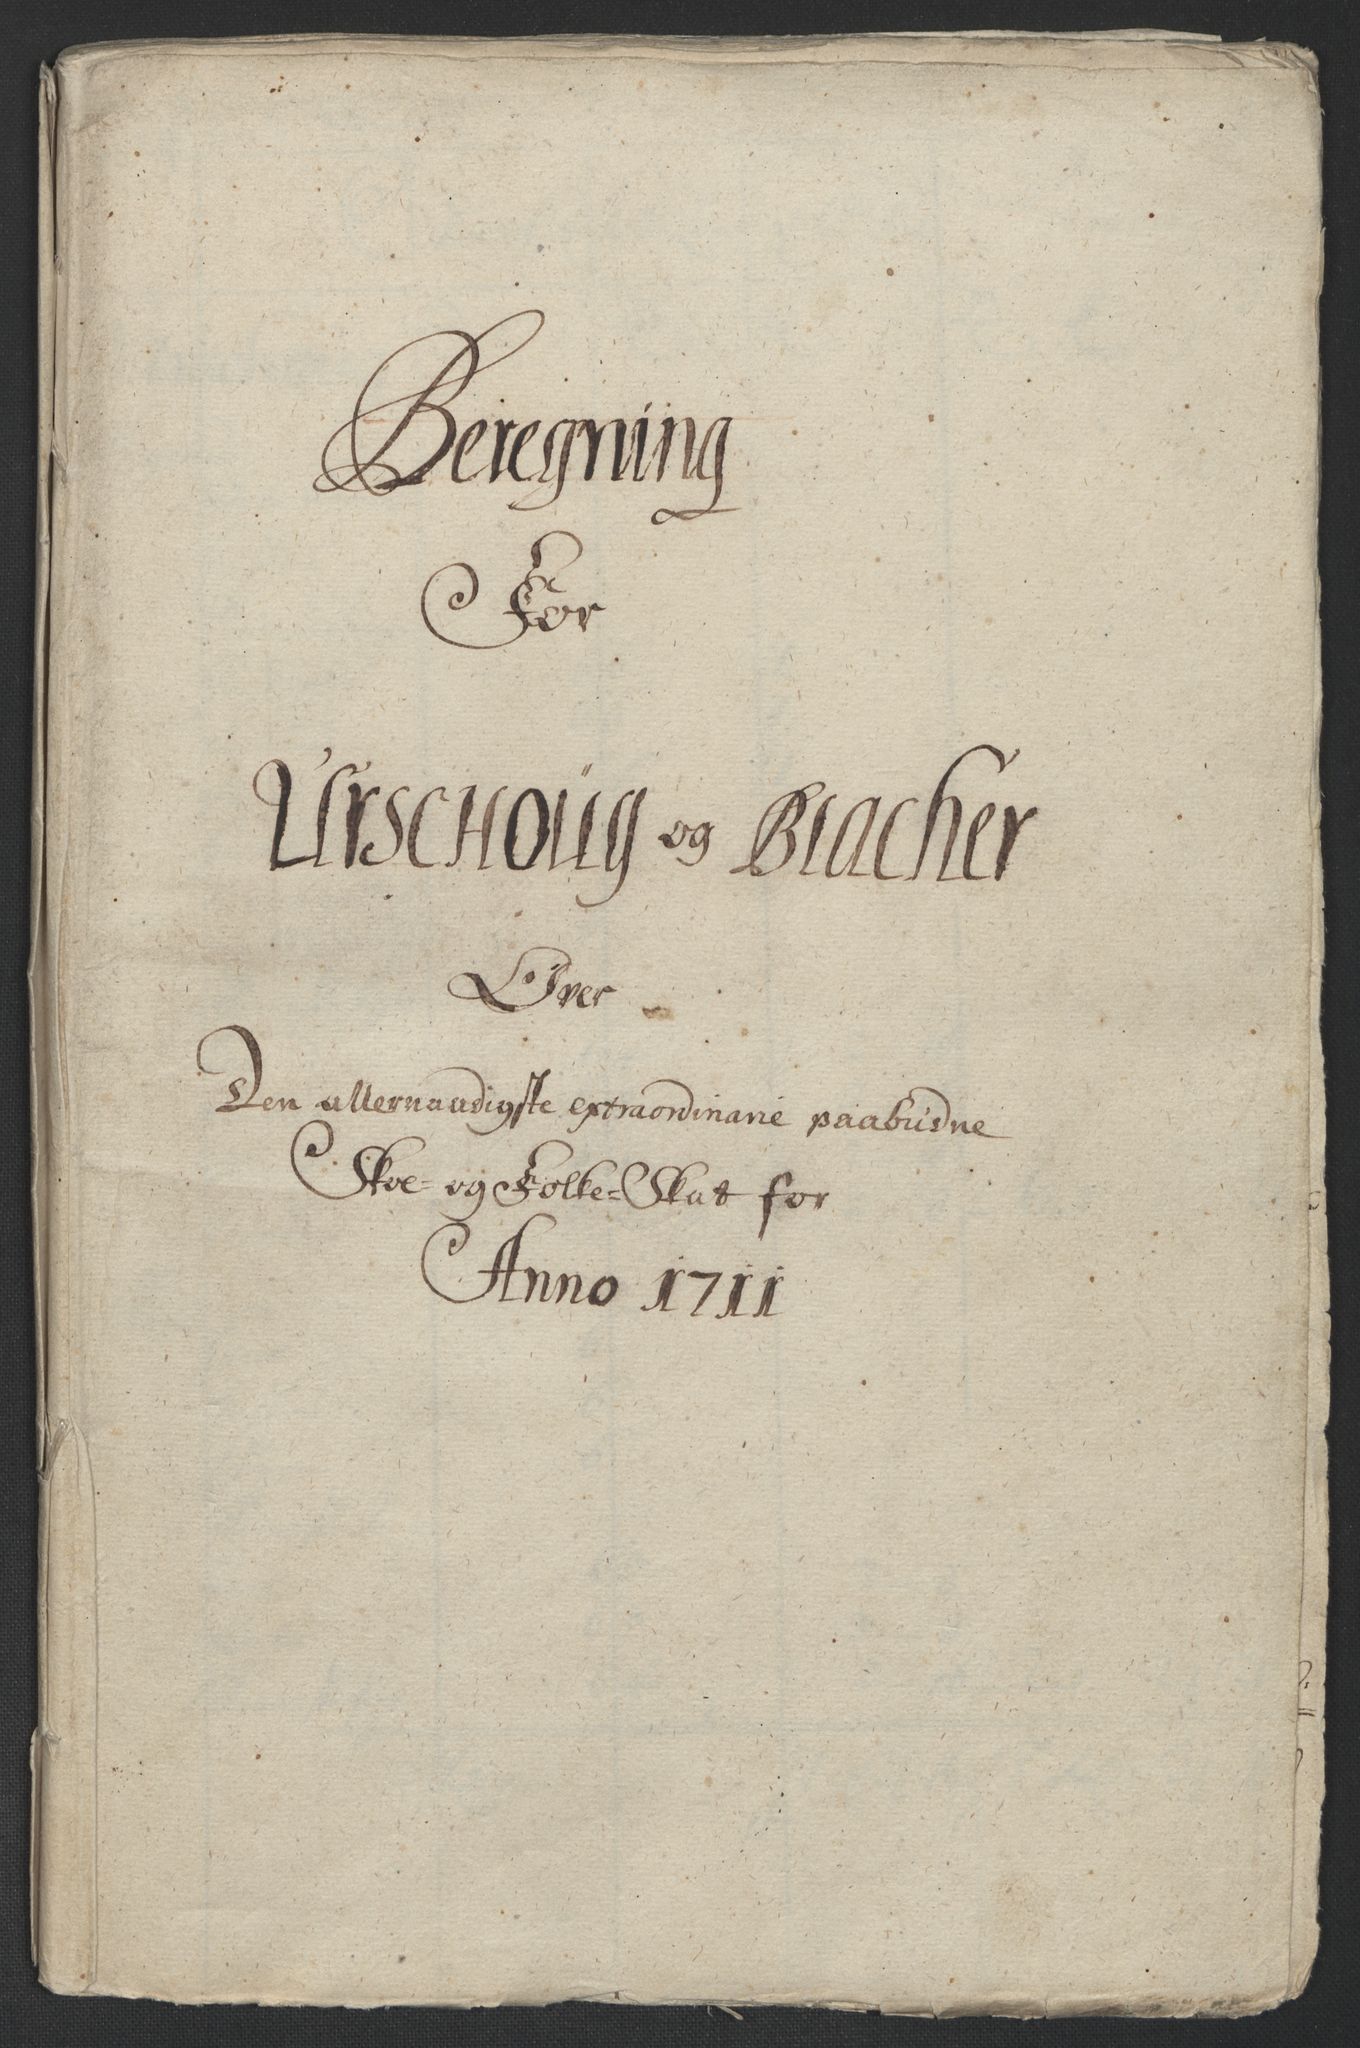 Beregning
For
Urschoug og Blacher
Over
Den allernaadigste extraordinarie paabudne
Skoe- og Folke-Skat for
Anno 1711